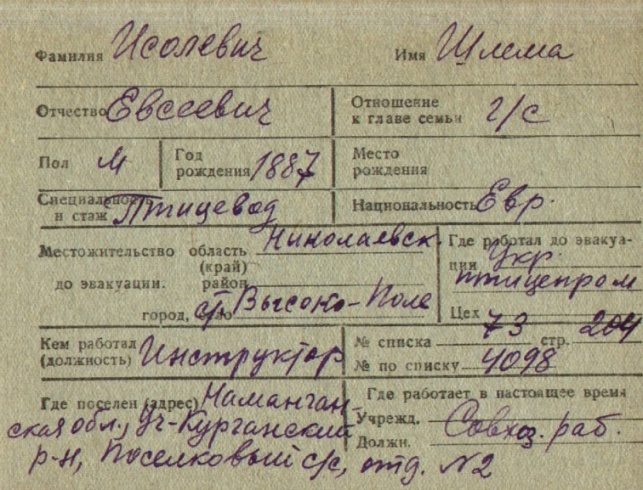 Фамилия Исолевич Имя Шлема
Отчество Евсеевич Отношение к главе семьи г/с
Пол М Год рождения 1887 Место рождения
Специальность и стаж Птицевод Национальность Евр.
Местожительство до эвакуации. область (край) Николаевск.
район
город, село ст. Высоко-Поле
Где работал до эвакуации Укр. птицепром
Цех
Кем работал (должность) Инструктор
№ списка 73 стр. 204
№ по списку 4098
Где поселен (адрес) Наманган-
ская обл., Уч-Курганский
р-н, Поселковый с/с, отд. №2
Где работает в настоящее время
Учрежд. Совхоз. раб.
Должн.